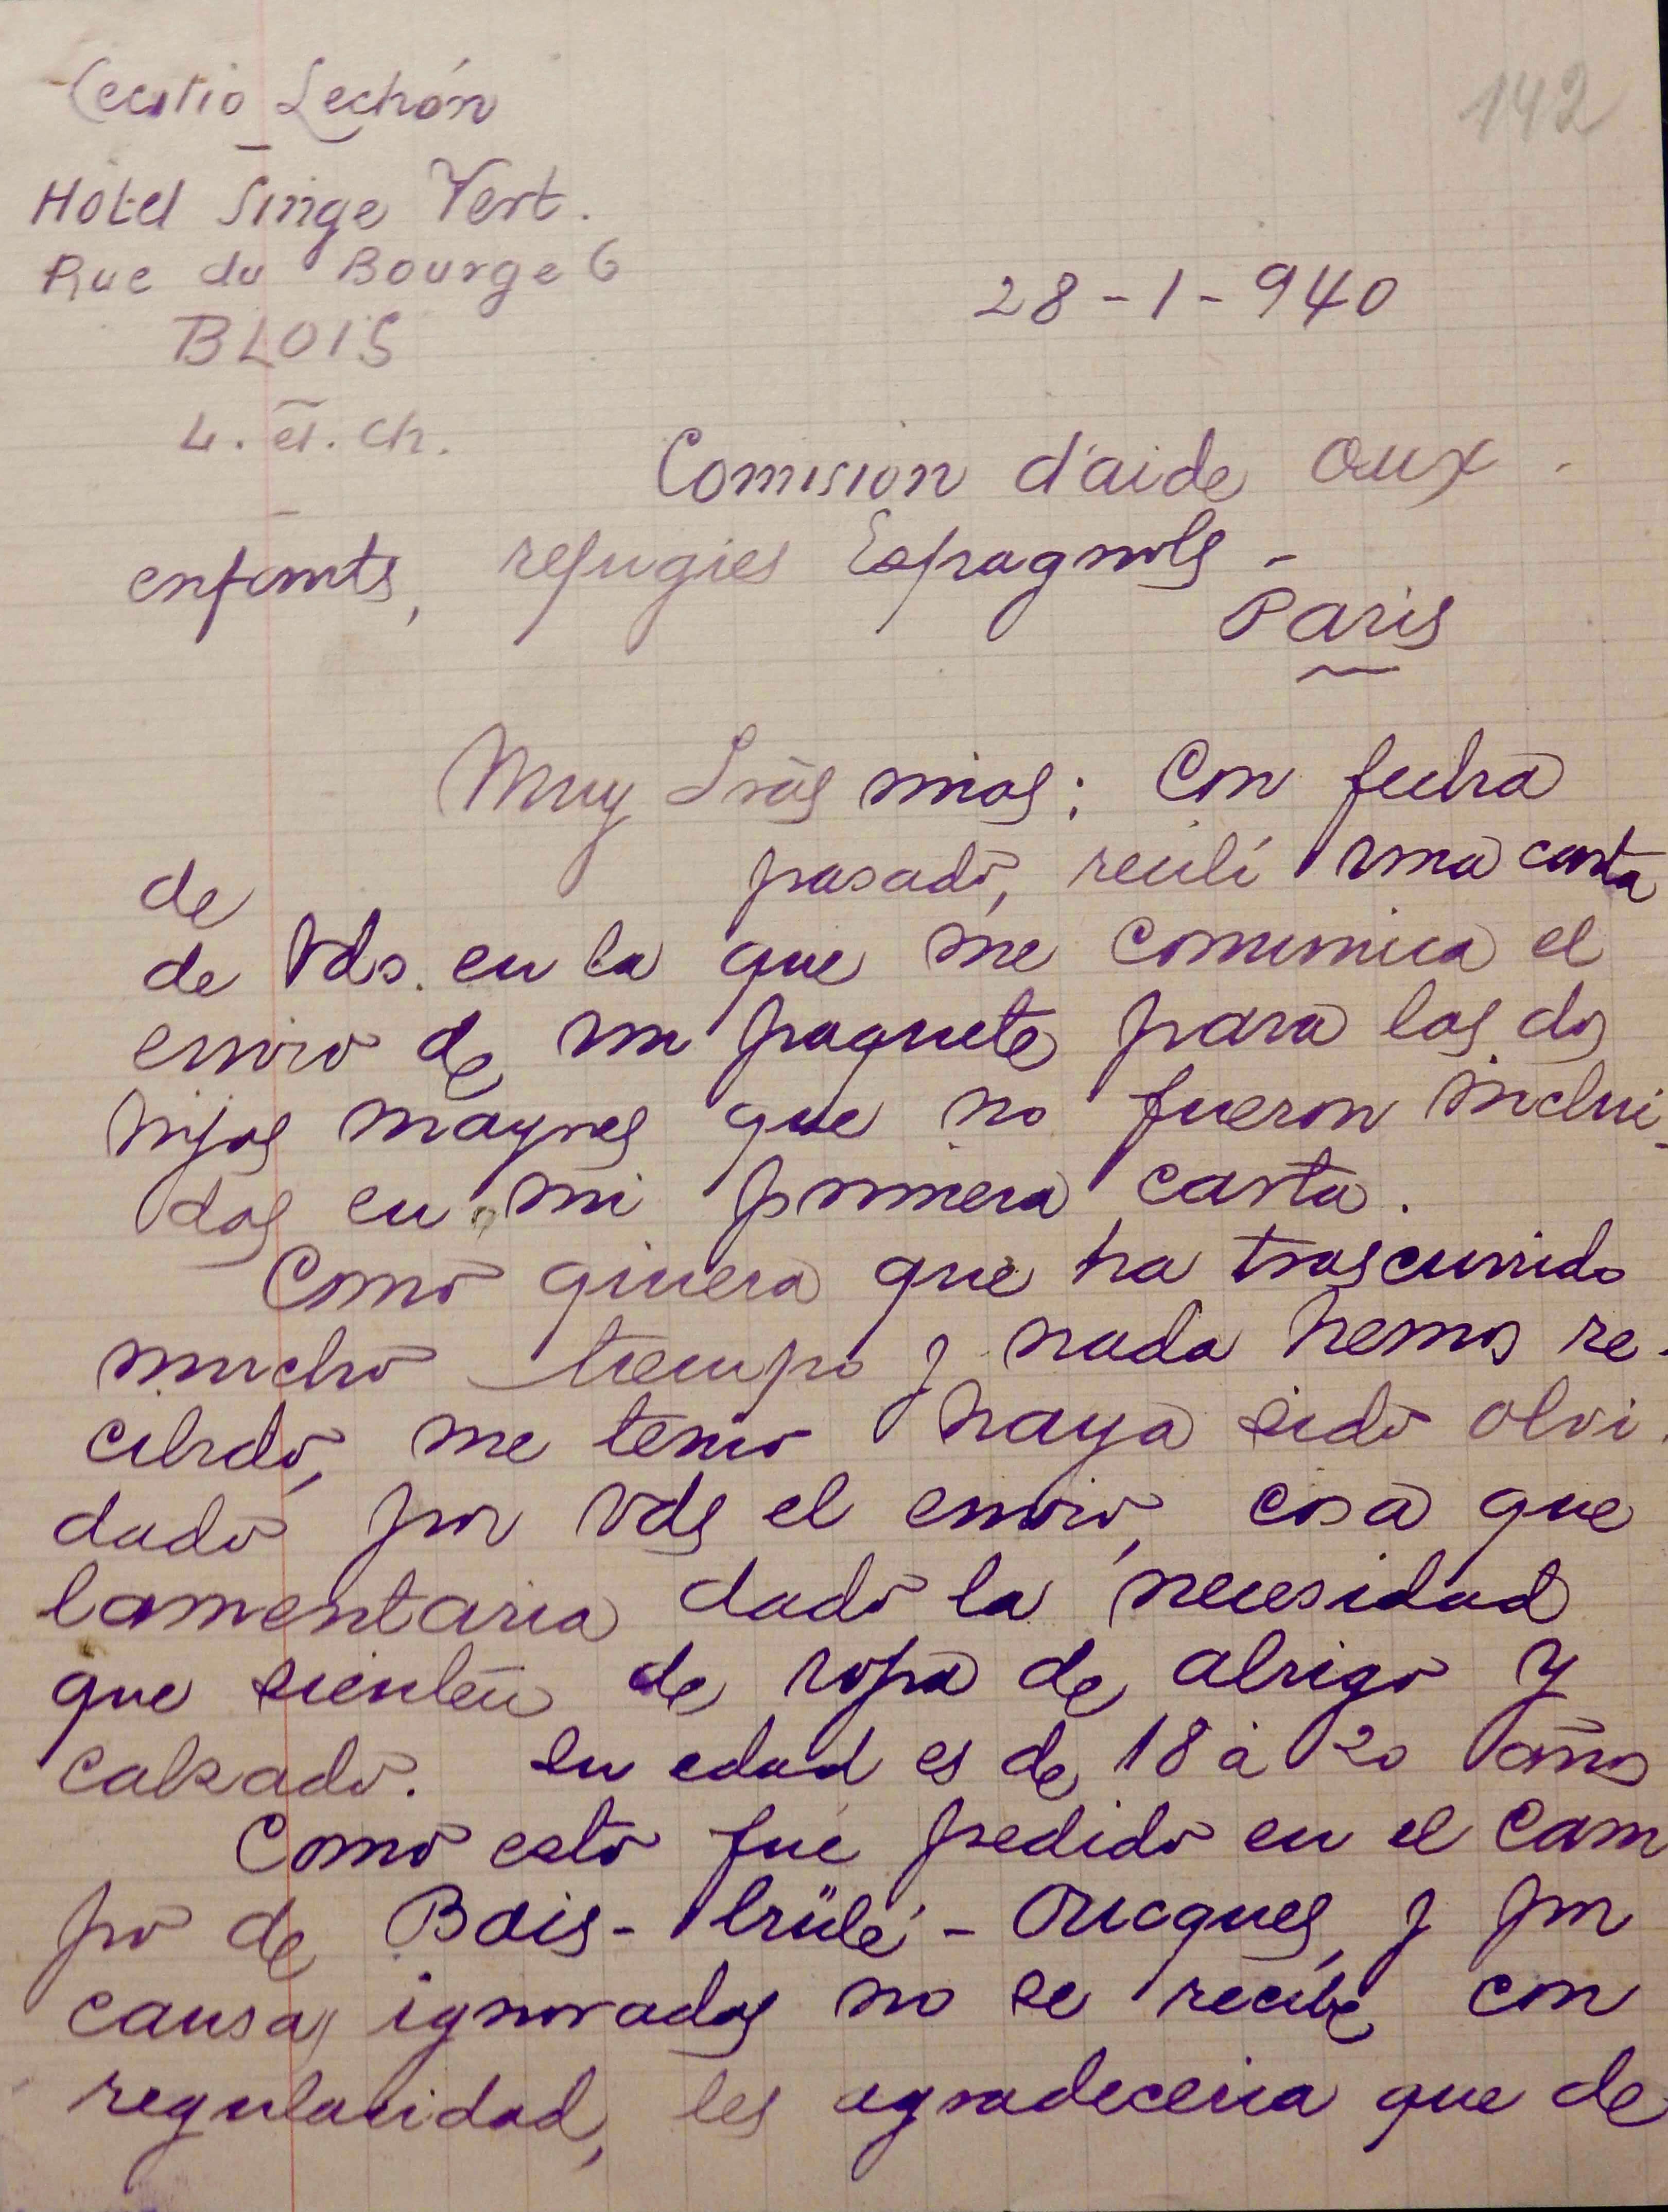 Cecilio Lechón
142
Hotel Singe Vert.
Rue du Bourge 6
28-1-940
BLOIS
L. et. Ch.
Comision d'aide aux
enfants, refugies Espagnols -
Paris
Muy Sras mios: Con fecha
de pasado, recibí una carta
de Vds. en la que me comunica el
envio de un paquete para los dos
hijos mayores que no fueron inclui-
dos en mi primera carta.
Como quiera que ha trascurrido
mucho tiempo y nada hemos re-
cibido, me temo haya sido olvi-
dado por Vds el envio, cosa que
lamentaria dado la necesidad
que sienten de ropa de abrigo y
calzado. Su edad es de 18 a 20 años
Como esto fué pedido en el cam
po de Bois-brülé-Oucques, y por
causas ignoradas no se recibe con
regularidad, les agradeceria que de